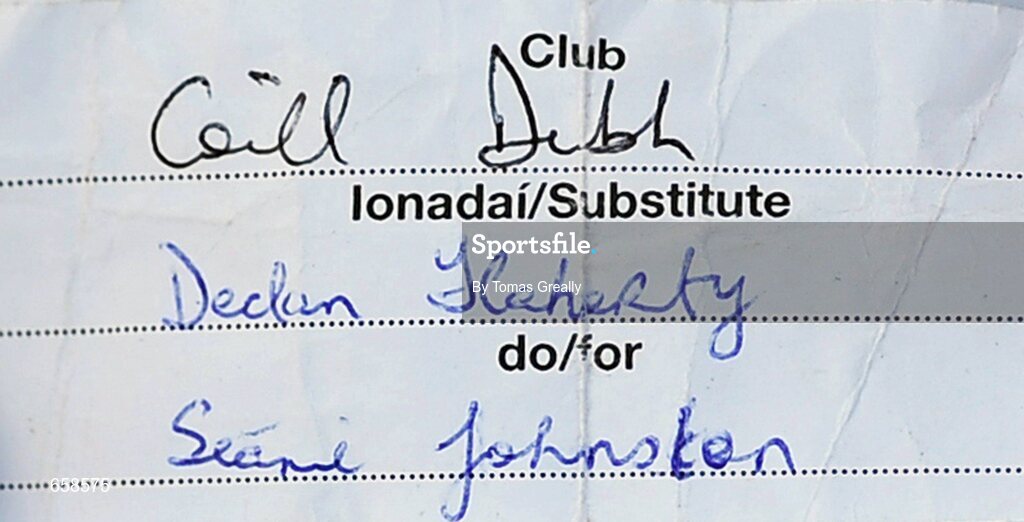 Club
Coill Dubh
Ionadaí/Substitute
Sportsfile.
Declan Flaherty
By Tomas Greally
do/for
Seánie Johnston
658576